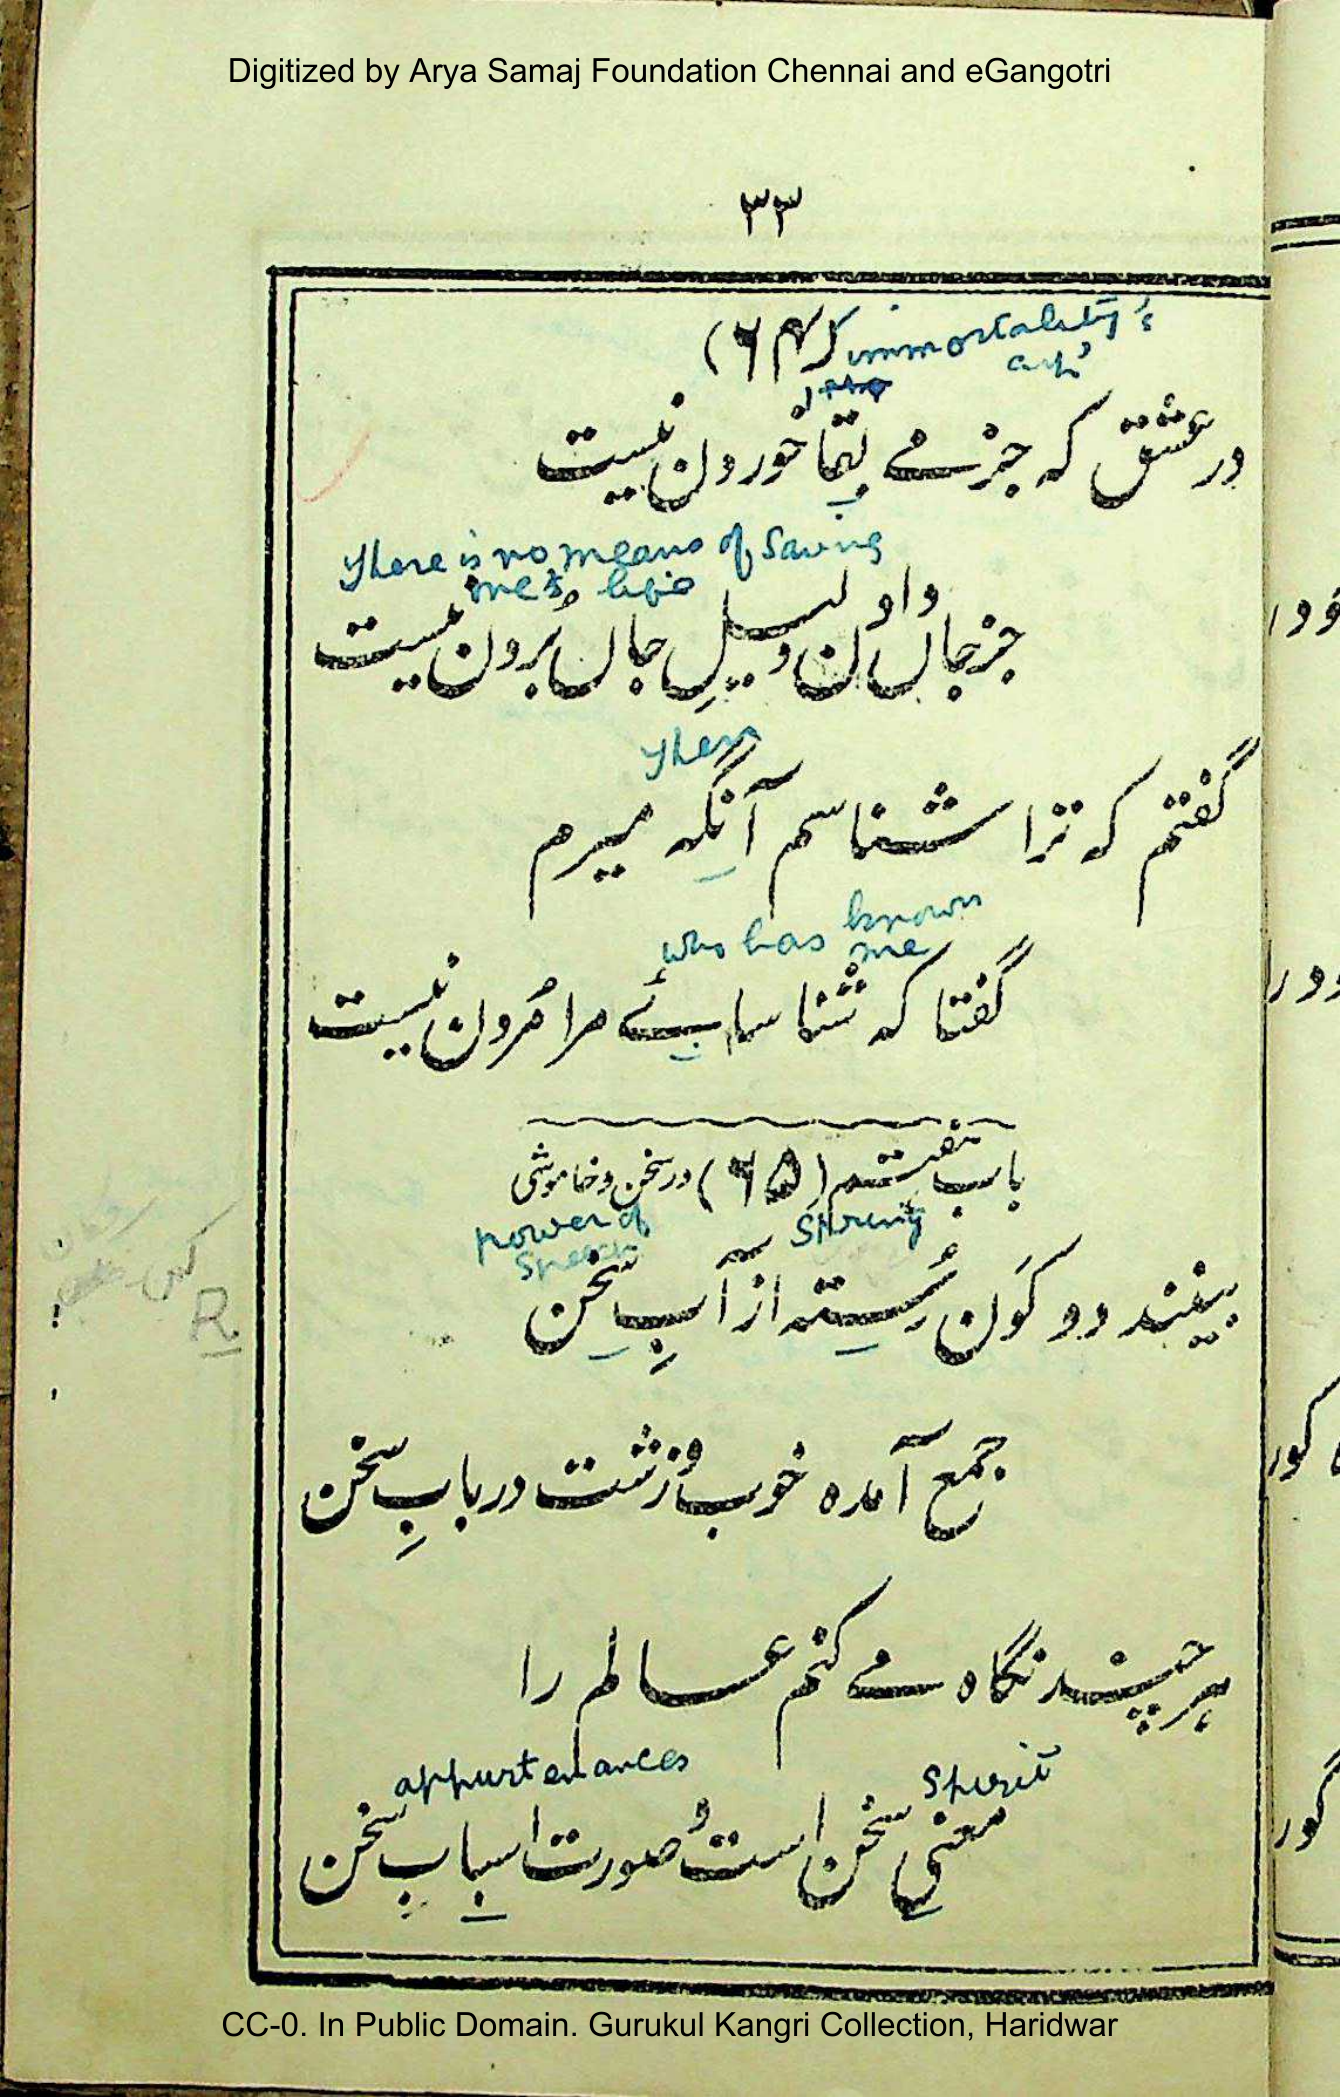 Digitized by Arya Samaj Foundation Chennai and eGangotri
۳۳
(۶۴) immortality's
cup
در عشق که جز مے بقا خوردن نیست
There is no means of saving
me's life
جز جاں دادن دلیلِ جاں بُردن نیست
Then
گفتم که ترا شناسم آنگه میرم
who has known
me
گفتا که شناسائے مرا مُردن نیست
باب هفتم (۶۵) در سخن و خاموشی
power of
speech
sprung
بینند دو کَون رُسته از آبِ سخن
جمع آمده خوب و زشت در بابِ سخن
هر چند نگاه مے کنم عالم را
appurtenances spirit
معنیِ سخن است و صورت اسبابِ سخن
R
CC-0. In Public Domain. Gurukul Kangri Collection, Haridwar